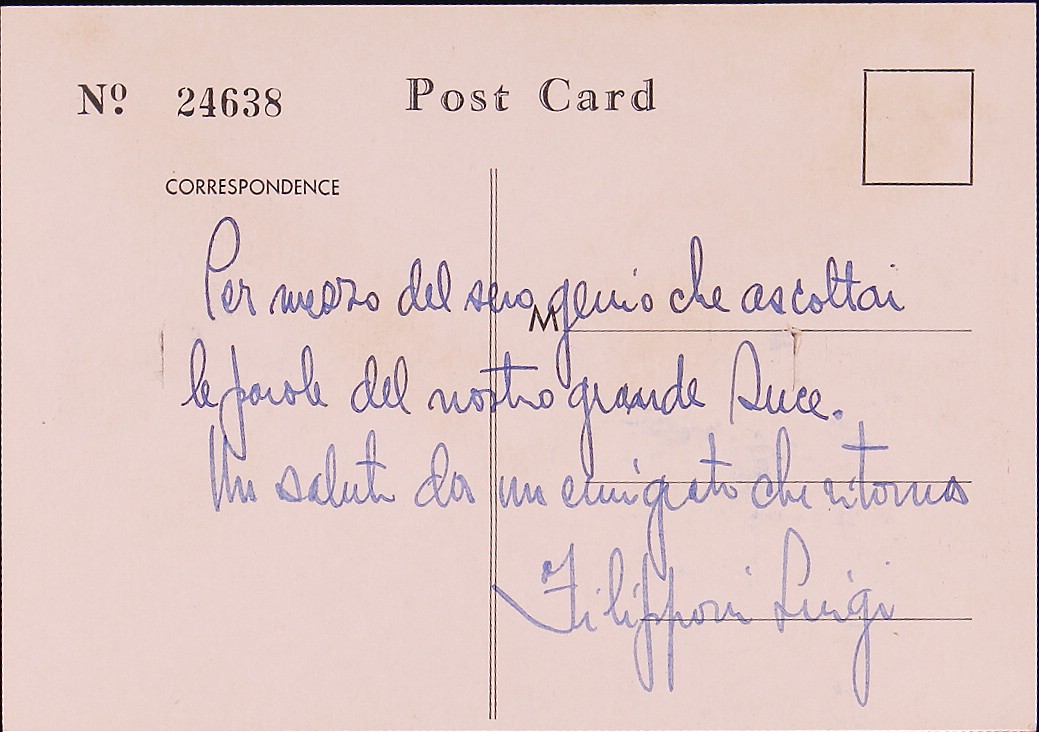 Nº 24638
Post Card
CORRESPONDENCE
Per mezzo del suo genio che ascoltai
M
le parole del nostro grande Duce.
Un saluto da un emigrato che ritorna
Filipponi Luigi